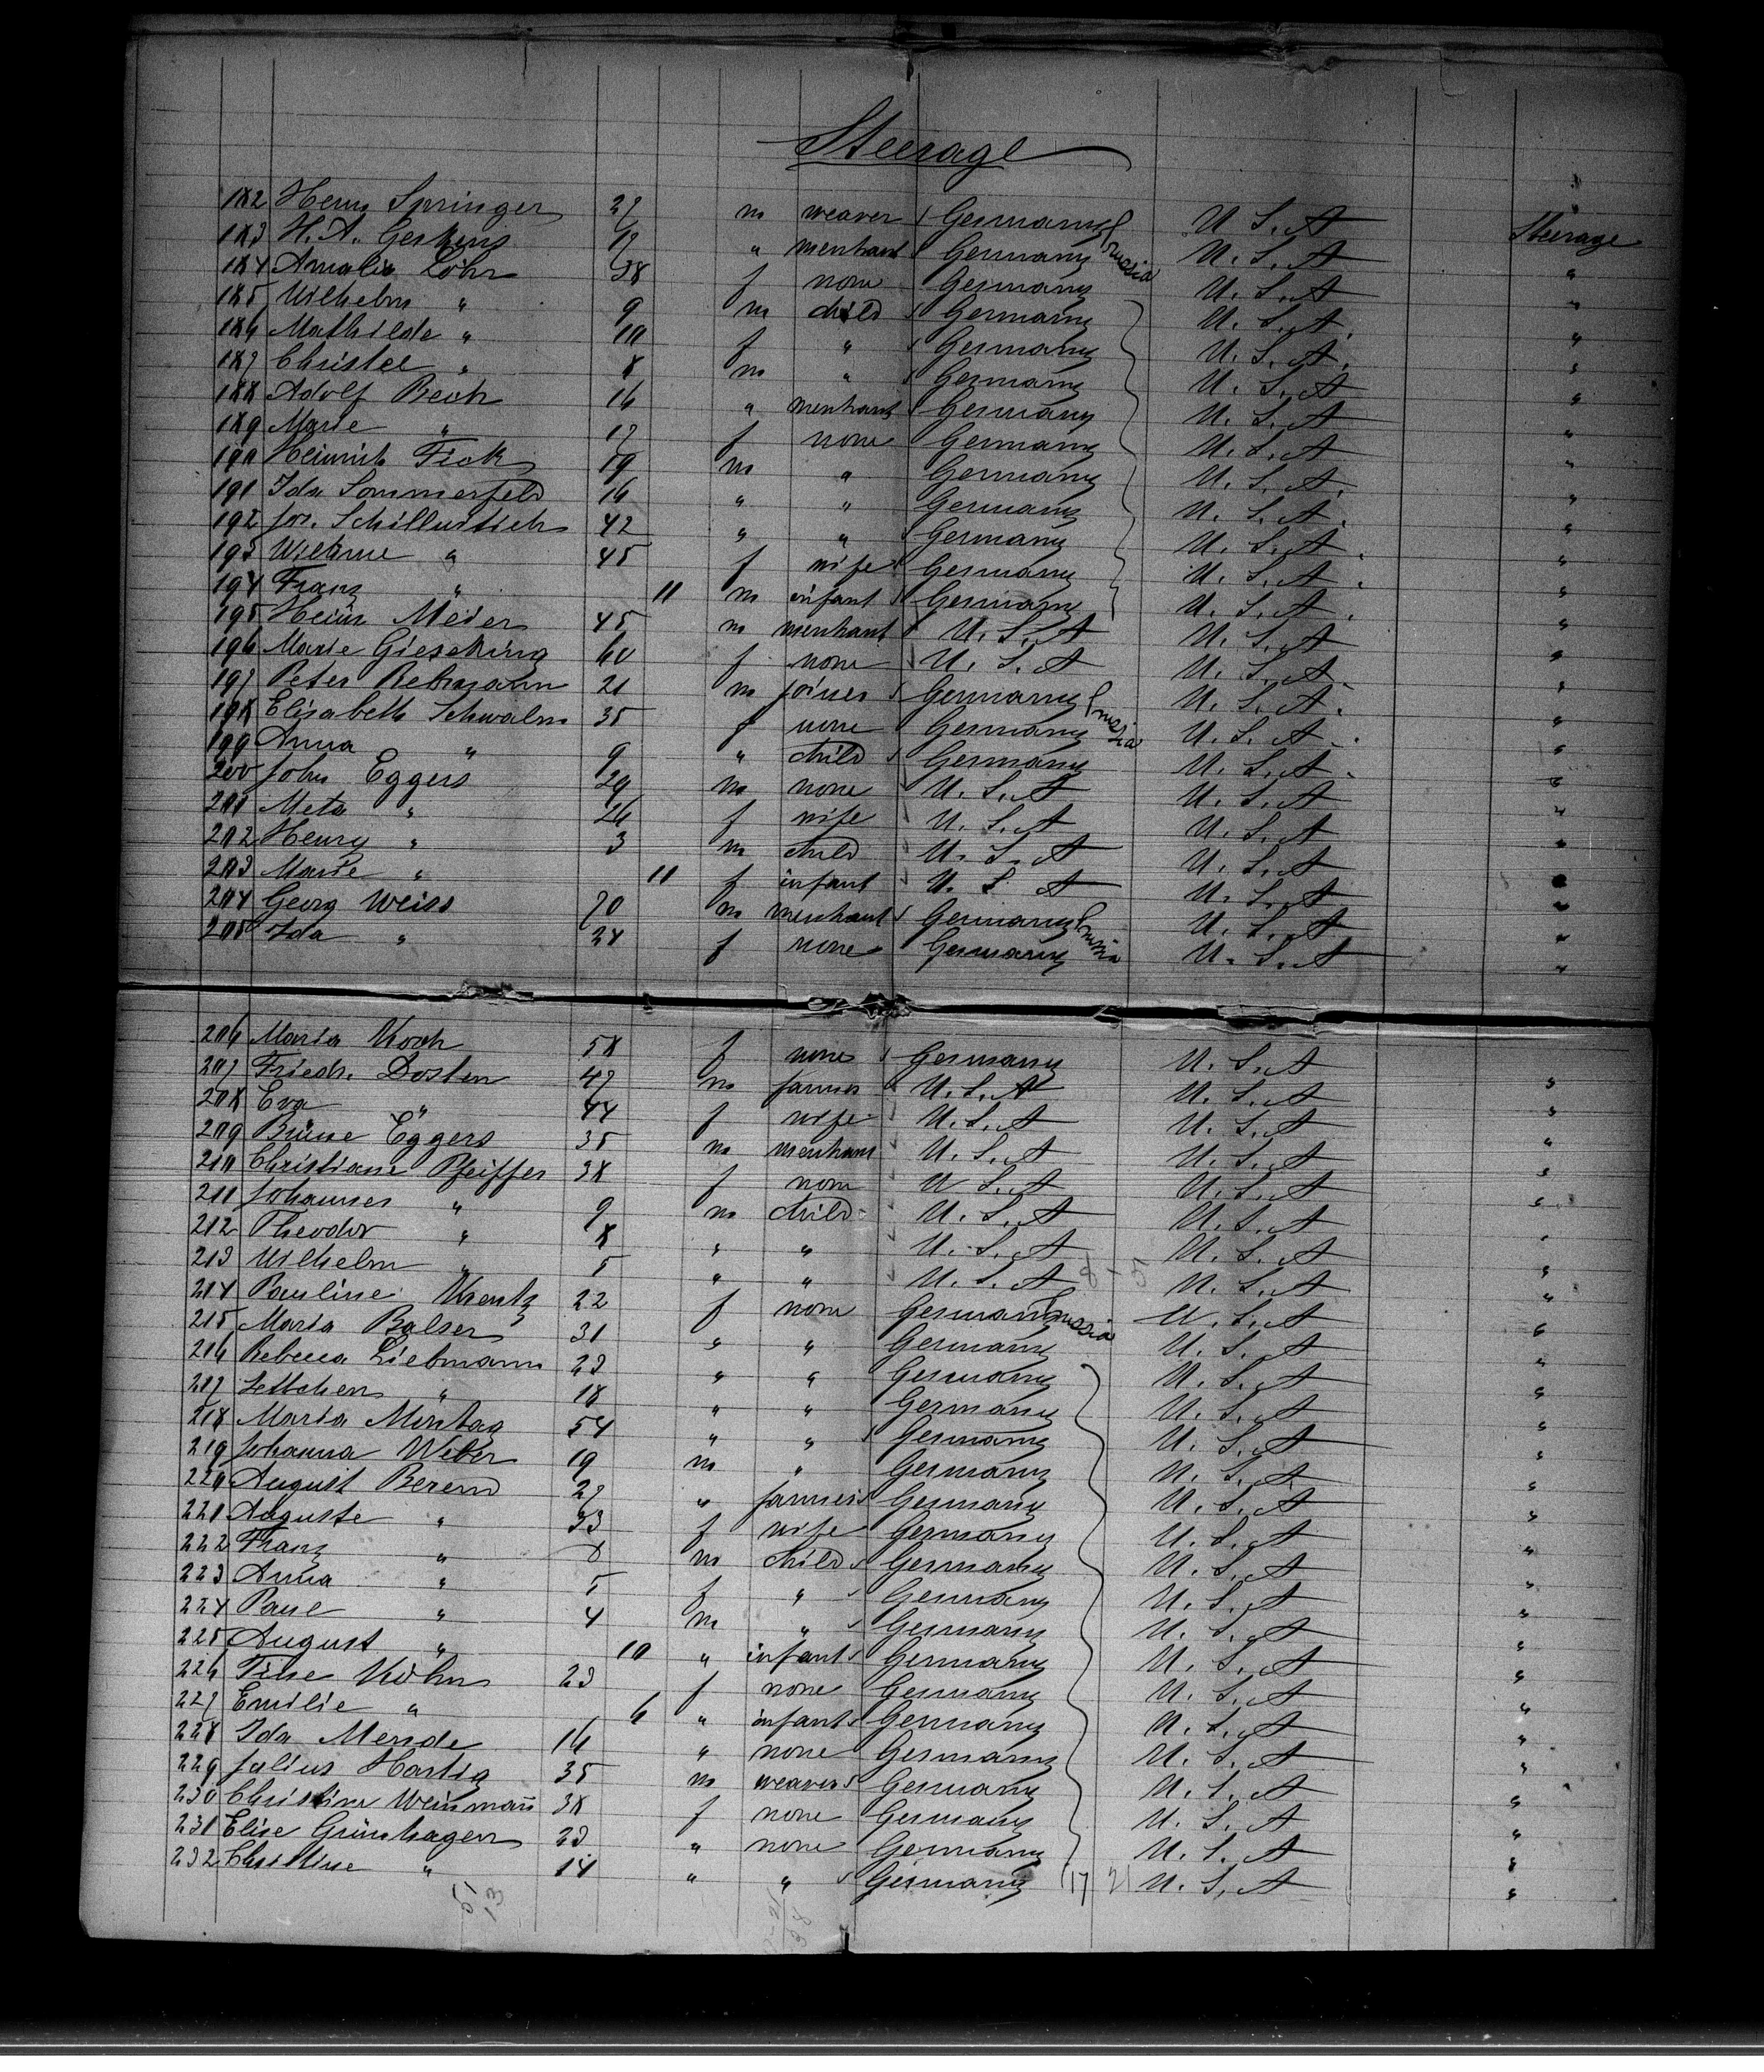 Steerage
182 Henry Springer 27 m weaver Germany Prussia U. S. A Steerage
183 H. A. Gerkens 17 " merchant Germany U. S. A "
184 Amalia Löhr 38 f none Germany U. S. A "
185 Wilhelm " 9 m child Germany U. S. A "
186 Mathilde " 10 f " Germany U. S. A "
187 Christel " 8 m " Germany U. S. A "
188 Adolf Bech 16 " merchant Germany U. S. A "
189 Marie " 17 f none Germany U. S. A "
190 Heinrich Fick 19 m " Germany U. S. A "
191 Ida Sommerfeld 16 " " Germany U. S. A "
192 Jos. 42 " " Germany U. S. A "
193 " 45 f wife Germany U. S. A "
194 Franz " 11 m infant Germany U. S. A "
195 Heinr Meier 45 m merchant U. S. A U. S. A "
196 Marie Gieseking 60 f none U. S. A U. S. A "
197 Peter Rebmann 21 m joiner Germany Prussia U. S. A "
198 Elisabeth Schwalm 35 f none Germany U. S. A "
199 Anna " 9 " child Germany U. S. A "
200 John Eggers 29 m none U. S. A U. S. A "
201 Meta " 26 f wife U. S. A U. S. A "
202 Henry " 3 m child U. S. A U. S. A "
203 Marie " 11 f infant U. S. A U. S. A "
204 Georg Weiss 70 m merchant Germany Prussia U. S. A "
205 Ida " 24 f none Germany U. S. A "
206 Maria Koch 58 f none Germany U. S. A "
207 Friedr. Dosten 47 m farmer U. S. A U. S. A "
208 Eva " 44 f wife U. S. A U. S. A "
209 Brüne Eggers 35 m merchant U. S. A U. S. A "
210 Christiane Pfeiffer 38 f none U. S. A U. S. A "
211 Johannes " 9 m child U. S. A U. S. A "
212 Theodor " 8 " " U. S. A U. S. A "
213 Wilhelm " 5 " " U. S. A U. S. A "
214 Pauline Krentz 22 f none Germany Prussia U. S. A "
215 Maria Balser 31 " " Germany U. S. A "
216 Rebecca Liebmann 23 " " Germany U. S. A "
217 Settchen " 18 " " Germany U. S. A "
218 Maria Mintag 54 " " Germany U. S. A "
219 Johanna Weber 19 m " Germany U. S. A "
220 August Berend 27 " farmer Germany U. S. A "
221 Auguste " 33 f wife Germany U. S. A "
222 Franz " 8 m child Germany U. S. A "
223 Anna " 5 f " Germany U. S. A "
224 Paul " 4 m " Germany U. S. A "
225 August " 10 " infant Germany U. S. A "
226 Tine Köhn 23 f none Germany U. S. A "
227 Emilie " 6 " infant Germany U. S. A "
228 Ida Mende 16 " none Germany U. S. A "
229 Julius Hartig 35 m weaver Germany U. S. A "
230 Christine Weinmañ 38 f none Germany U. S. A "
231 Elise Grünhagen 23 " none Germany U. S. A "
232 Christine " 14 " " Germany 17 21 U. S. A "
51
13
38